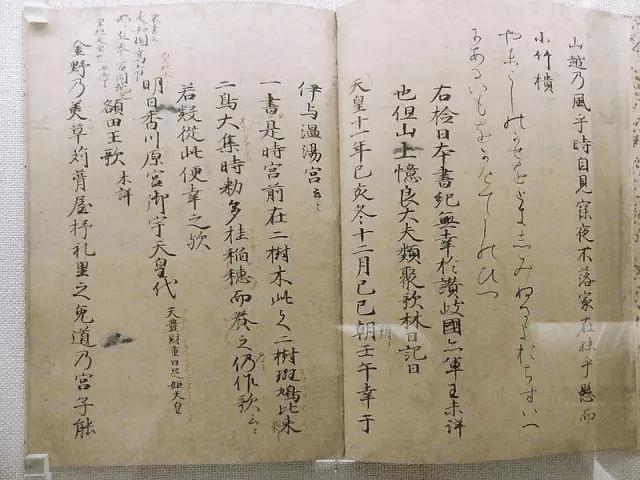 山越乃風乎時自見寐夜不落家在妹乎懸而
小竹櫃
やまこしのかせをときしみぬるよおちすいへ
にあるいもをかけてしのひつ
右檢日本書紀無幸於讃岐國亦軍王未詳
也但山上憶良大夫類聚歌林日記曰
天皇十一年己亥冬十二月己巳朝壬午幸于
朔
伊与温湯宮云々
一書是時宮前在二樹木此之二樹斑鳩比米
二鳥大集時勅多桂稲穂而養之仍作歌云々
若疑從此便幸之歟
明日香川原宮御宇天皇代 天豊財重日足姫天皇
額田王歌 未詳
金野乃美草苅葺屋杼礼里之兎道乃宮子能